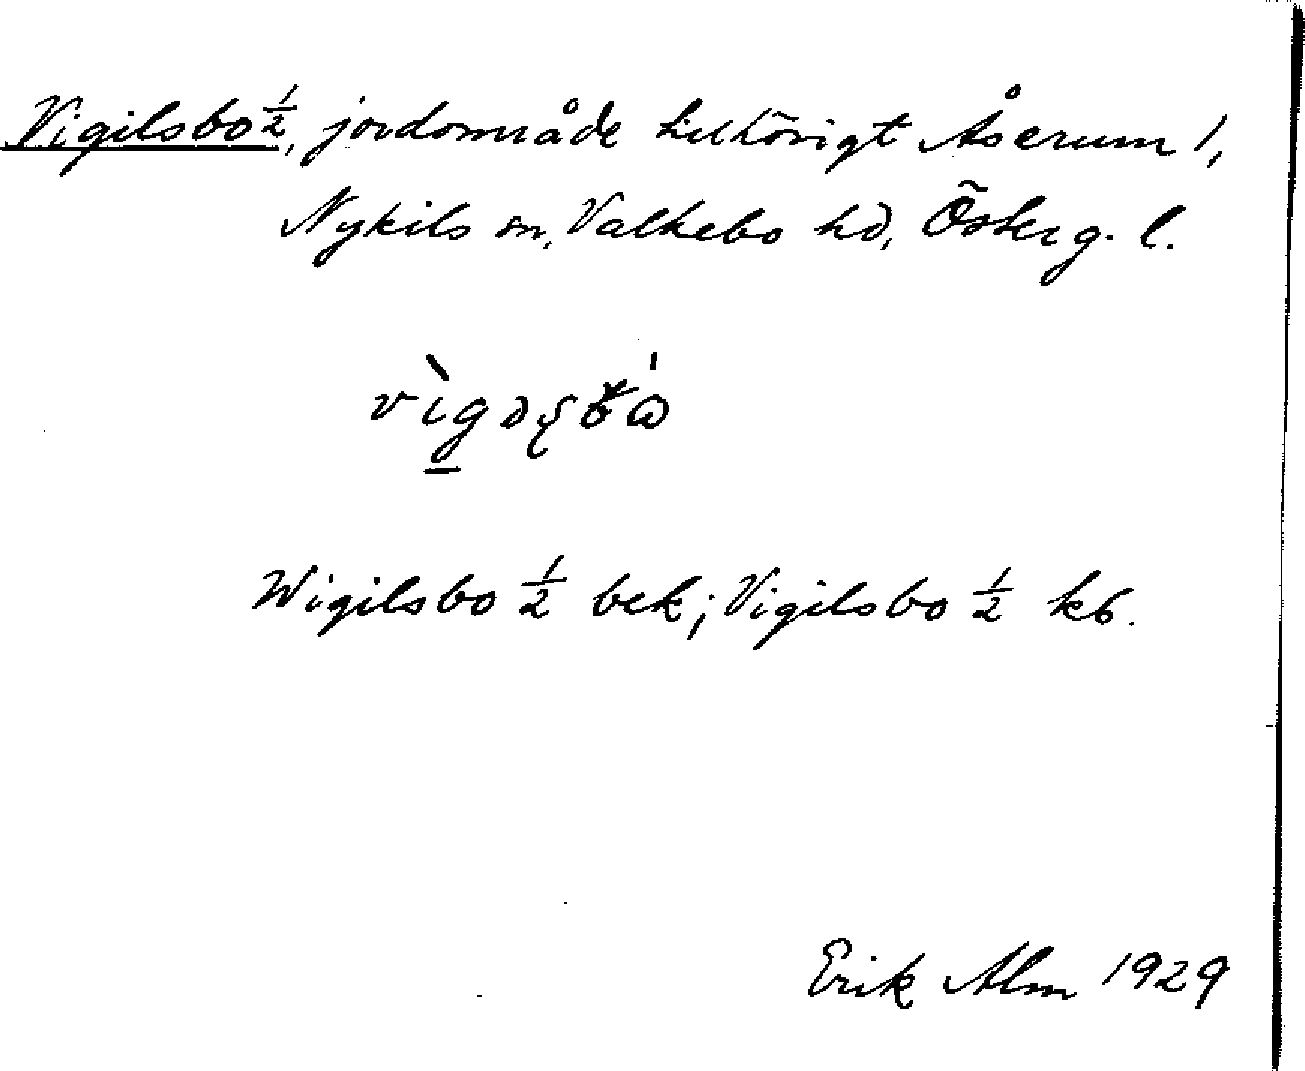 Vigilsbo ½, jordområde tillhörigt Åserum 1,
Nykils sn, Valkebo hd, Österg. l.
Wigilsbo ½ bek; Vigilsbo ½ kb.
Erik Alm 1929